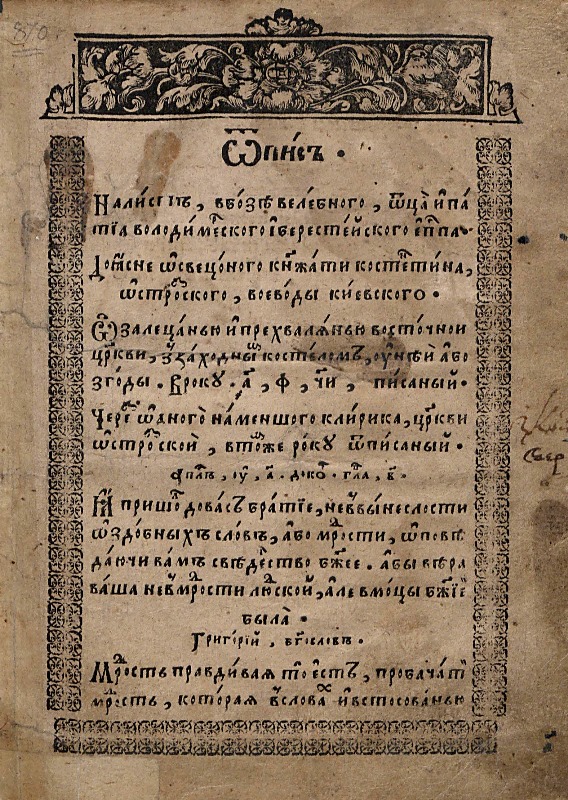 870
Ѿписъ .
На листъ , в бозѣ велебного , ѿца ипа
тїа володимєского ібєрєстєйского єп̃па .
До ꙗсне ѡсвєцоного кнѧжати костєнтина ,
ѡстрозского , воєводы києвского .
Ѡ залєцанью и прєхвалѧнью восточнои
црк҃ви , з заходнымъ костєломъ , оунѣи або
згоды . В року . ҂а , ф , чи , писаный .
Чєрєз ѡдного намєншого клирика , црк҃ви
ѡстрозской , в томъжє року ѿписаный .
Єпл , оу , а . до ко . гла , в .
И ꙗ пришол до вас братїє , нє в вынєслости
ѡздобныхъ словъ , або мдрости , ѡповѣ
даючи вамъ свѣдєство бж҃єє . абы вѣра
ваша нє в мдрости людской , алє в моцы бж҃їє
была .
Григорїй , бг҃ословъ .
Мдрость правдивая то єстъ , пробачати
мдрость , которая в словах и в стосованью